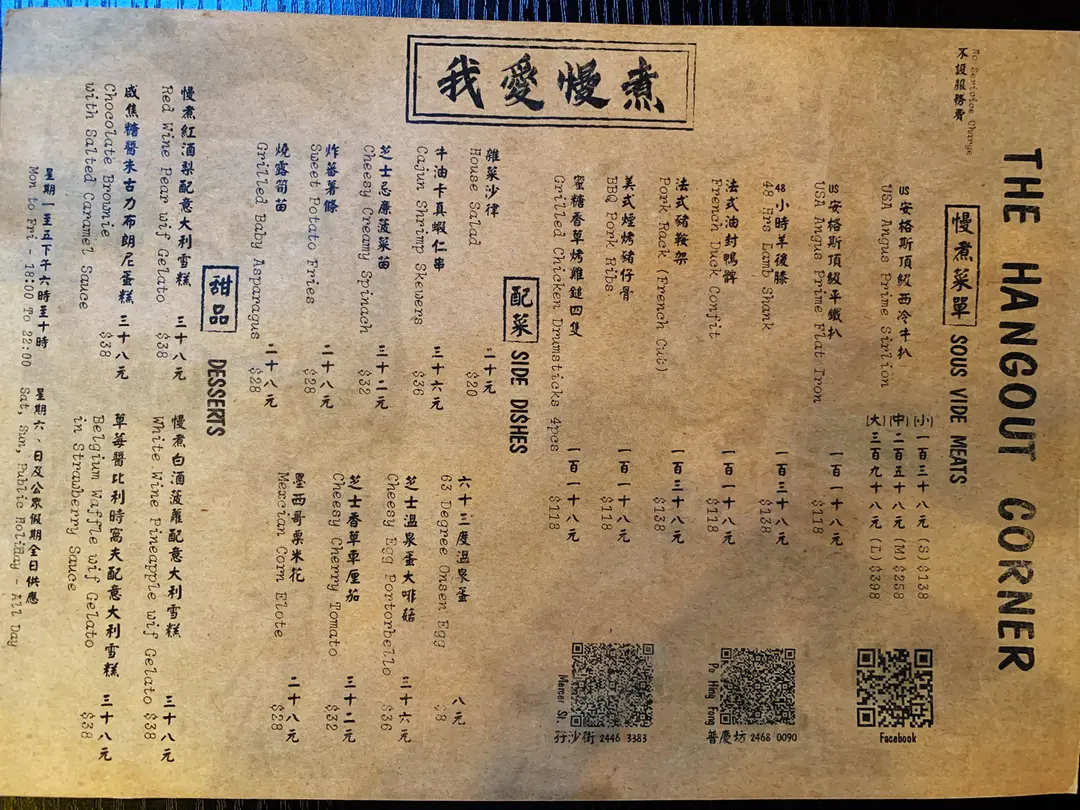 THE HANGOUT CORNER
No Serivice Change
不設服務費
慢煮菜單 SOUS VIDE MEATS
US安格斯頂級西冷牛扒 (小) 一百三十八元 (S) $138
USA Angus Prime Sirlion (中) 二百五十八元 (M) $258
(大) 三百九十八元 (L) $398
US安格斯頂級平鐵扒 一百一十八元
USA Angus Prime Flat Iron $118
48小時羊後膝 一百三十八元
48 Hrs Lamb Shank $138
法式油封鴨髀 一百一十八元
French Duck Confit $118
法式豬鞍架 一百三十八元
Pork Rack (French Cut) $138
美式煙烤豬仔骨 一百一十八元
BBQ Pork Ribs $118
蜜糖香草烤雞鎚四隻 一百一十八元
Grilled Chicken Drumsticks 4pcs $118
Facebook
Po Hing Fong
普慶坊 2468 0090
Mercer St.
行沙街 2446 3383
我愛慢煮
配菜 SIDE DISHES
雜菜沙律 二十元
House Salad $20
牛油卡真蝦仁串 三十六元
Cajun Shrimp Skewers $36
芝士忌廉菠菜苗 三十二元
Cheesy Creamy Spinach $32
炸蕃薯條 二十八元
Sweet Potato Fries $28
燒露筍苗 二十八元
Grilled Baby Asparagus $28
六十三度溫泉蛋 八元
63 Degree Onsen Egg $8
芝士溫泉蛋大啡菇 三十六元
Cheesy Egg Portorbello $36
芝士香草車厘茄 三十二元
Cheesy Cherry Tomato $32
墨西哥粟米花 二十八元
Mexcian Corn Elote $28
甜品 DESSERTS
慢煮紅酒梨配意大利雪糕 三十八元
Red Wine Pear wif Gelato $38
咸焦糖醬朱古力布朗尼蛋糕 三十八元
Chocolate Brownie $38
with Salted Caramel Sauce
慢煮白酒菠蘿配意大利雪糕 三十八元
White Wine Pineapple wif Gelato $38
草莓醬比利時窩夫配意大利雪糕 三十八元
Belgium Waffle wif Gelato $38
in Strawberry Sauce
星期一至五下午六時至十時
Mon to Fri - 18:00 To 22:00
星期六，日及公眾假期全日供應
Sat, Sun, Public Holiday - All Day